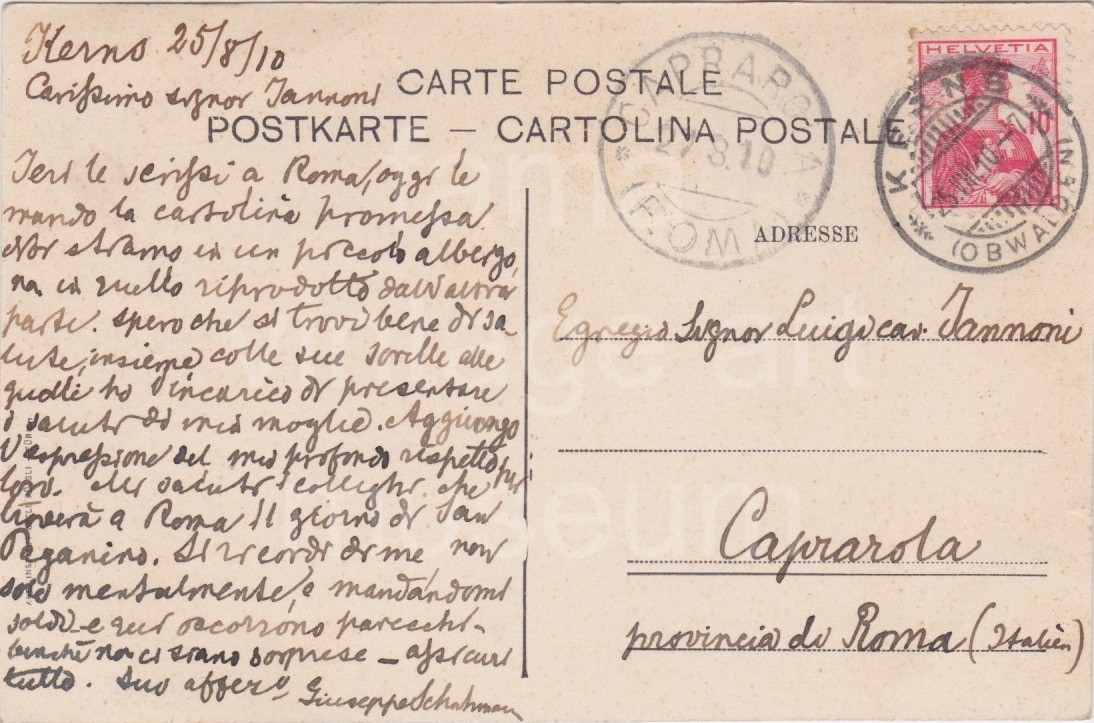 Kerns 25/8/10
Carissimo signor Jannoni
CARTE POSTALE
POSTKARTE — CARTOLINA POSTALE
CAPRAROLA
27.8.10
(ROMA)
HELVETIA
10
KERNS
(OBWALDEN)
ADRESSE
Ieri le scrissi a Roma, oggi le
mando la cartolina promessa.
Noi stiamo in un piccolo albergo,
non in quello riprodotto dall'altra
parte. Spero che si trovi bene di sa
lute, insieme colle sue sorelle alle
quali ho l'incarico di presentare
i saluti di mia moglie. Aggiungo
l'espressione del mio profondo rispetto per
loro. Mi saluti i colleghi che
troverà a Roma il giorno di San
Paganino. Si ricordi di me non
solo mentalmente, e mandandomi
soldi - e qui occorrono parecchi -
benchè non ci siano sorprese - assicuri
tutto. Suo affez.o
Giuseppe
Egregio Signor Luigi cav. Jannoni
Caprarola
provincia di Roma (Italien)
vintage art
museum